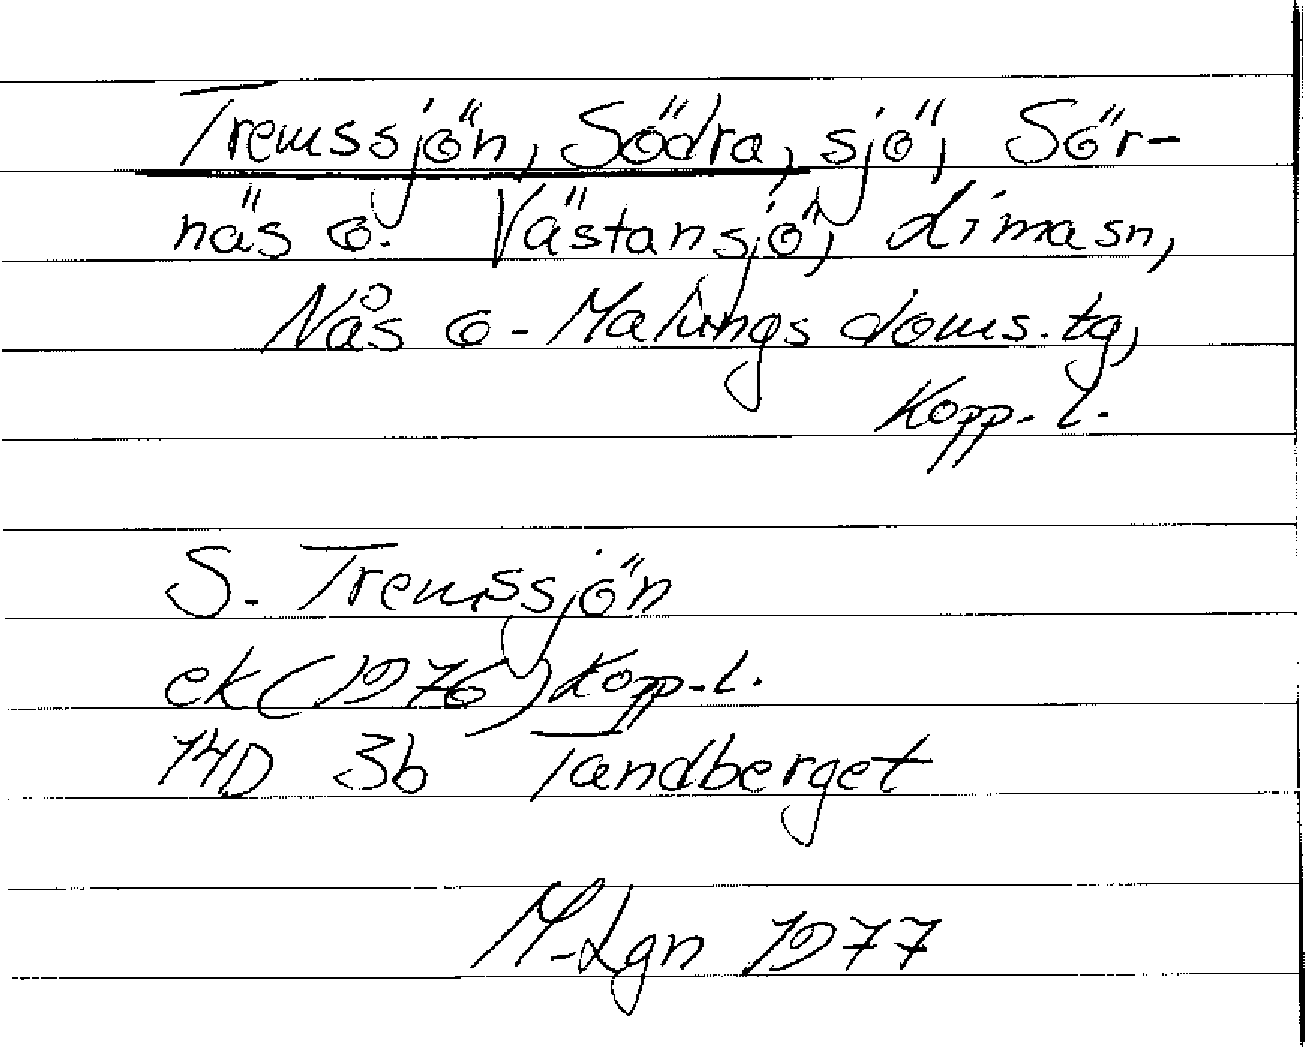 Tremssjön, Södra, sjö, Sör-
näs o. Västansjö, Limasn,
Nås o. Malungs doms.tg,
Kopp. l.
S. Tremssjön
ek (1976) Kopp. l.
14D 3b Tandberget
M-Lgn 1977